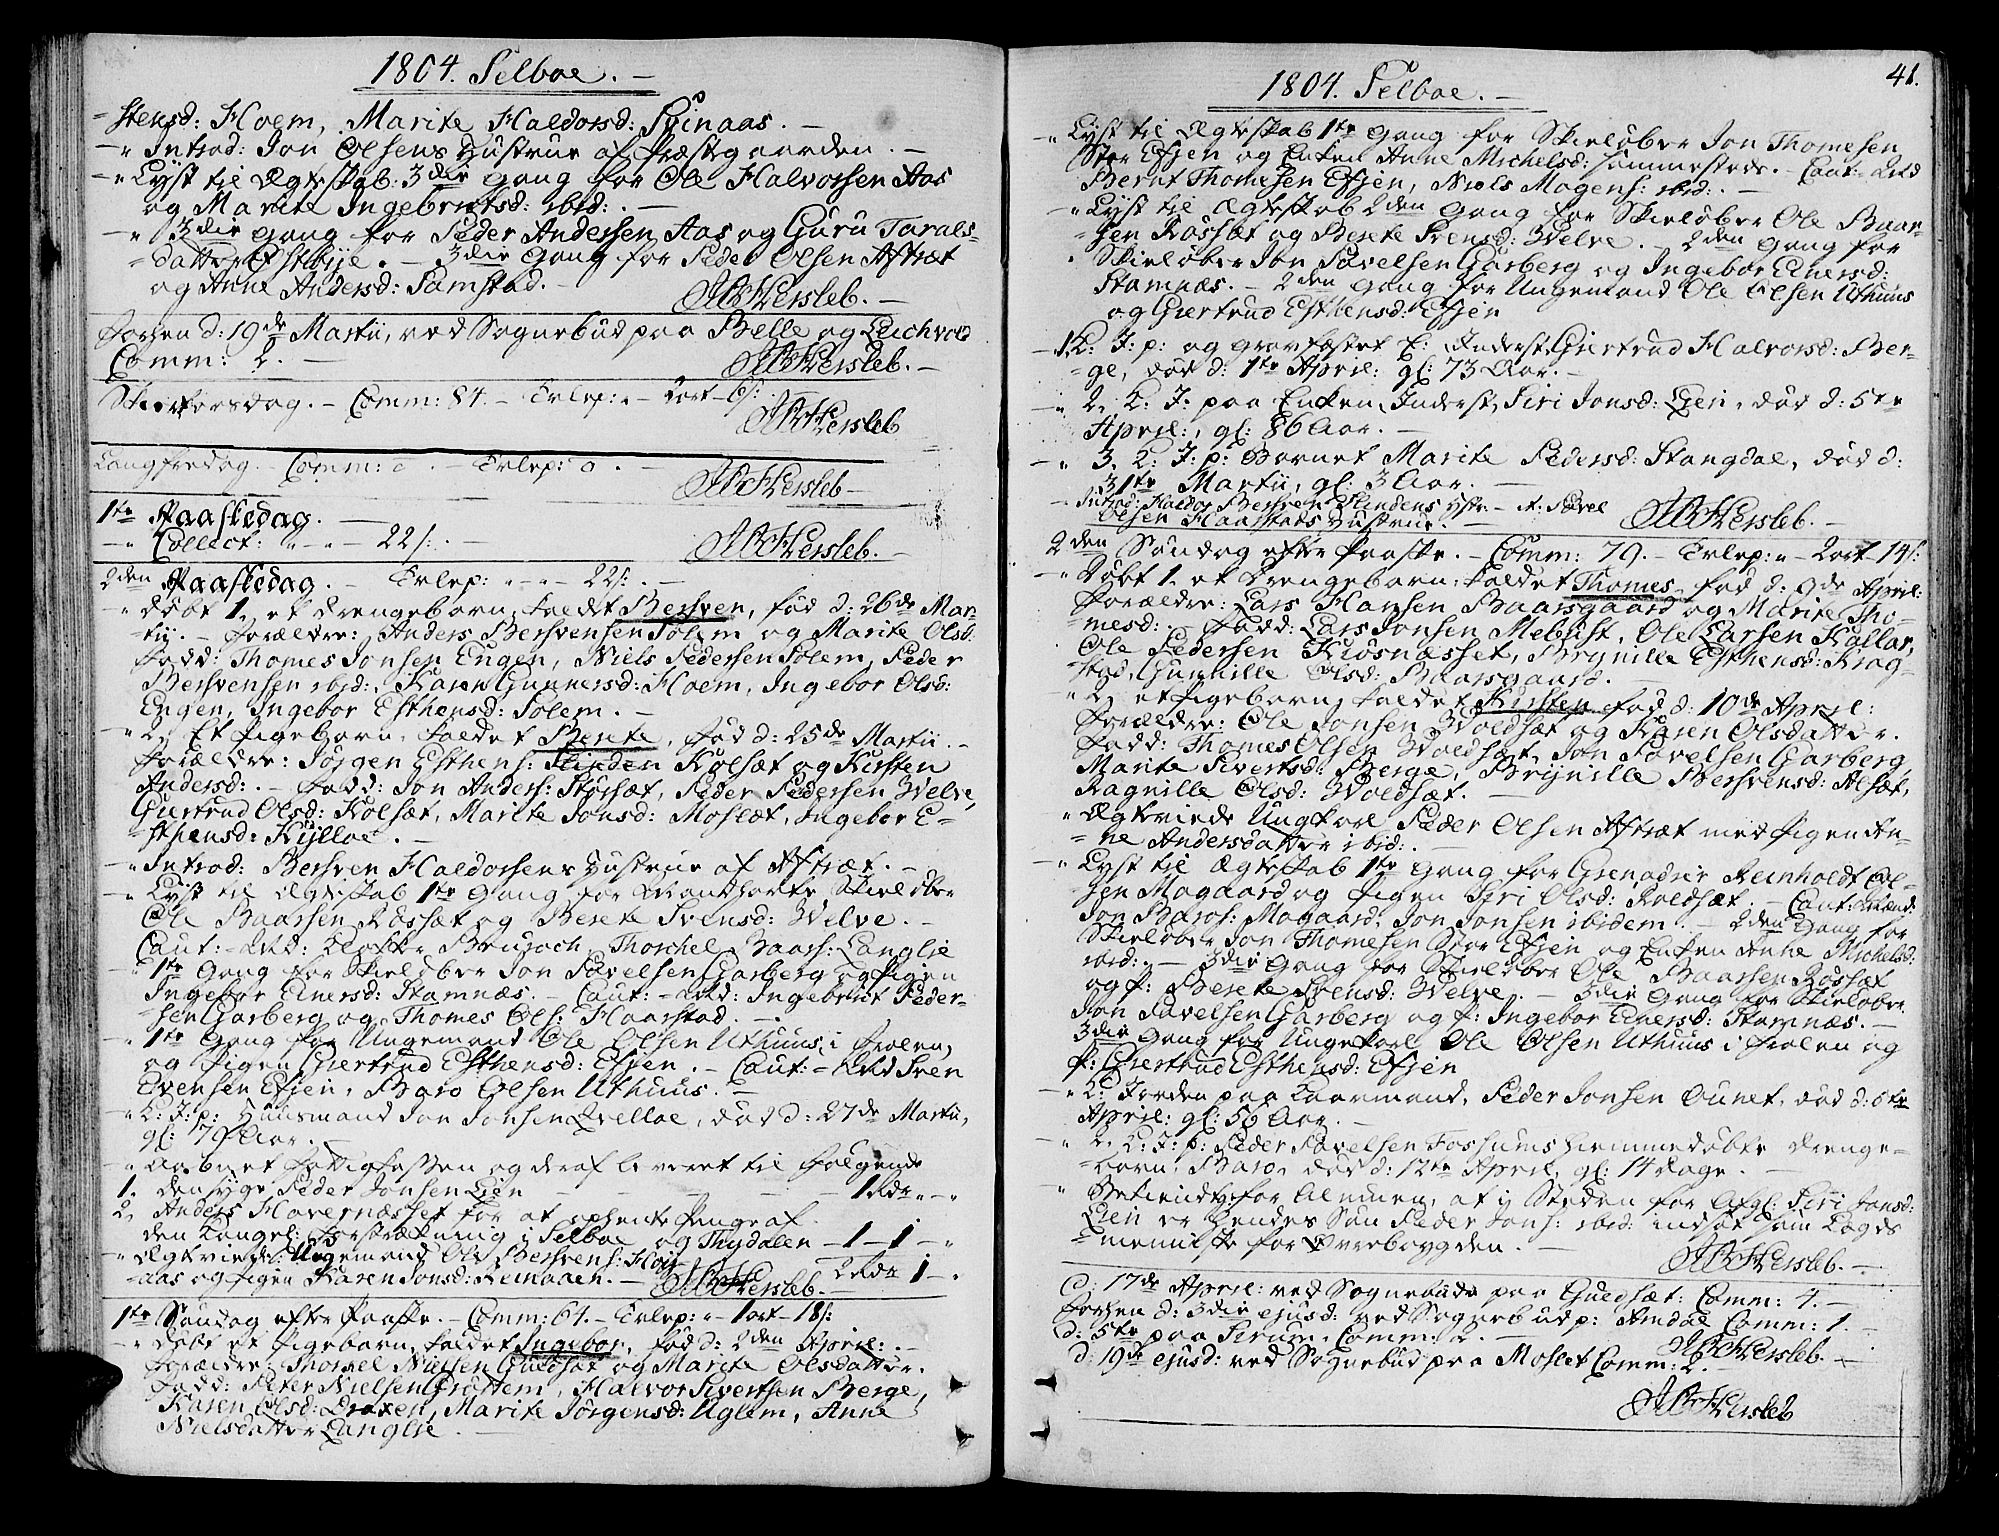 1804. Selboe. –
stensd: Hoem, Marite Haldorsd: Stinaas. –
–„ Introd: Jon Olsens Hustrue af Præstgaarden. –
–„ Lyst til Ægteskab 3die Gang for Ole Halvorsen Aas
og Marite Ingebrigtsd: ibid: –
–„ 3die Gang for Peder Andersen Aas og Guru Tarals-
datter Østbye. – 3die Gang for Peder Olsen Aftræt
og Anne Andersd: Samstad. –
Hersleb. –
d: 19de Martii, ved Sognebud paa Belle og Lichvold
Comm: 2. – Hersleb. –
Skiertorsdag. – Comm: 84. – Erlep: „ 2ort – 6/:
Hersleb
Langfredag. – Comm: 0. – Erlep: 0. – Hersleb –
1te Paaskedag. –
–„ Collect: „ – „ – 22/: – Hersleb. –
2den Paaskedag. – Erlep: „ – „ – 22/: –
„ Døbt 1, et Drengebarn, kaldet Bersven, fød d: 26de Mar-
tii. – Forældre: Anders Bersvensen Solem og Marite Olsd:
Fadd: Thomes Jonsen Engen, Niels Pedersen Solem, Peder
Bersvensen ibid:, Karen Gunnersd: Hoem, Ingebor Olsd:
Engen, Ingebor Esthensd: Solem. –
–„ 2, Et Pigebarn, kaldet Berete, fød d: 25de Martii –
Forældre: Jørgen Esthens: Kolset og Kirsten
Andersd: – Fadd: Jon Anders: Størset, Peder Pedersen Welve,
Giertrud Olsd: Kolset, Marite Jonsd: Moslet, Ingebor E-
sthensd: Kylloe. –
–„ Introd: Bersven Haldorsens Hustrue af Aftræt. –
–„ Lyst til Ægteskab 1te Gang for Skieløber
Ole Baarsen Røsset og Berete Svensd: Welve. –
Caut: Thorchel Baars: Langlie
–„ 1te Gang for Skieløber Jon Pavelsen Garberg og Pigen
Ingebor Einersd: Stamnæs. – Caut: Ingebrigt Peder-
sen Garberg og Thomes Ols: Haarstad. –
–„ 1te Gang for Ungemand Ole Olsen Uthuus, i Frolen,
og Pigen Giertrud Esthensd: Efjen. – Caut: Sven
Evensen Efjen, Baro Olsen Uthuus. –
–„ L: J: p: Huusmand Jon Jonsen Qvelloe, død d: 27de Martii,
gl: 79 Aar. –
–„ Aabnet Fattigkassen og deraf leveret til følgende
1. den syge Peder Jonsen Lien – – – 1 Rdr „ – „
2, Anders Havernæsset for at ophente Penge af
den Kongel: Forstrækning i Selboe og Thydalen – 1 – 1 – „
–„ Ægteviede Ungemand Ole Bersvens:
aas og Pigen Karen Jonsd: Reinaaen. – 2 Rdr 1 – „
Hersleb. –
1te Søndag efter Paaske. – Comm: 64. – Erlep: „ 1ort – 18/:
–„ Døbt et Pigebarn, kaldet Ingebor, fød d: 2den April: –
Forældre: Thorkel Nielsen Guldset og Marite Olsdatter.
Fadd: Peter Nielsen Grøttem, Halvor Sivertsen Berge,
Karen Olsd: Draxen, Marite Jørgensd: Uglem, Anne
Nielsdatter Langlie. –
1804. Selboe. –
41.
–„ Lyst til Ægteskab 1te Gang for Skieløber Jon Thomesen
Stor Efjen og Enken Anne Michelsd: sammesteds. – Caut:
Bernt Thomesen Efjen, Niels Mogens: ibid: –
–„ Lyst til Ægteskab 2den Gang for Skieløber Ole Baar-
sen Røsset og Berete Svensd: Welve. – 2den Gang for
Skieløber Jon Pavelsen Garberg og Ingebor Einersd:
Stamnæs. – 2den Gang for Ungemand Ole Olsen Uthuus
og Giertrud Esthensd: Efjen
– 1, L: J: p: og gravfæstet E: Inderst Giertrud Halvorsd: Ber-
ge, død d: 1te April: gl: 73 Aar. –
–„ 2, L: J: paa Enken, Inderst, Siri Jonsd: Lien, død d: 5te
April:, gl: 86 Aar. –
–„ 3, L: J: p: Barnet Marite Pedersd: Stangdal, død d:
31te Martii, gl: 3 Aar. –
–„ Introd: Haldor Bersven Slindens Hstr: – it: Pavel
Olsen Haarstads Hustrue. Hersleb. –
2den Søndag efter Paaske. – Comm: 79. – Erlep: „ – 2ort – 14/:
–„ Døbt 1, et Drengebarn, kaldet Thomes, fød d: 9de April:
Forældre: Lars Hansen Baarsgaard og Marite Tho-
mesd: – Fadd: Lars Jonsen Mebust, Ole Larsen Kallar,
Ole Pedersen Kiøsnæsset, Brynille Esthensd: Krog-
stad, Gunnille Olsd: Baarsgaard.
„ 2, et Pigebarn, kaldet Kirsten, fød d: 10de April:
Forældre: Ole Jonsen Woldset og Karen Olsdatter.
Fadd: Thomes Olsen Woldset, Jon Pavelsen Garberg
Marite Sivertsd: Berge, Brynille Bersvensd: Alset,
Ragnille Olsd: Woldset. –
„ Ægteviede Ungkarl Peder Olsen Aftræt med Pigen An-
ne Andersdatter ibid: –
–„ Lyst til Ægteskab 1te Gang for Grenadir Reinholdt Ol-
sen Mogaard og Pigen Siri Olsd: Roldset. – Caut:
Jon Baros: Mogaard, Jon Jonsen ibidem. – 2den Gang for
Skieløber Jon Thomesen Stor Efjen og Enken Anne Michelsd:
ibid: – 3die Gang for Skieløber Ole Baarsen Røsset
og P: Berete Svensd: Welve. – 3die Gang for Skieløber
Jon Pavelsen Garberg og P: Ingebor Einersd: Stamnæs. –
3die Gang for Ungekarl Ole Olsen Uthuus i Frolen og
P: Giertrud Esthensd: Efjen
–„ L: Jorden paa Laarmand, Peder Jonsen Ounet, død d: 6te
April: gl: 56 Aar. –
–„ 2, L: J: p: Peder Pavelsen Fossums hiemmedøbte Drenge-
barn, Baro, død d: 12te April, gl: 14 Dage. –
–„ Bekiendt for Almuen, at i Steden for Afgl: Siri Jonsd:
Lien er hendes Søn Peder Jons: ibid: indsat som Lægds
for Øvrebøygden. – Hersleb. –
d: 17de April: ved Sognebud paa Guldset: Comm: 4. –
d: 3die ejusd: ved Sognebud p: Amdal Comm: 1. –
d: 5te paa Serum, Comm: Hersleb. –
d: 19de ejusd: ved Sognebud paa Moslet Comm: 2
Hersleb